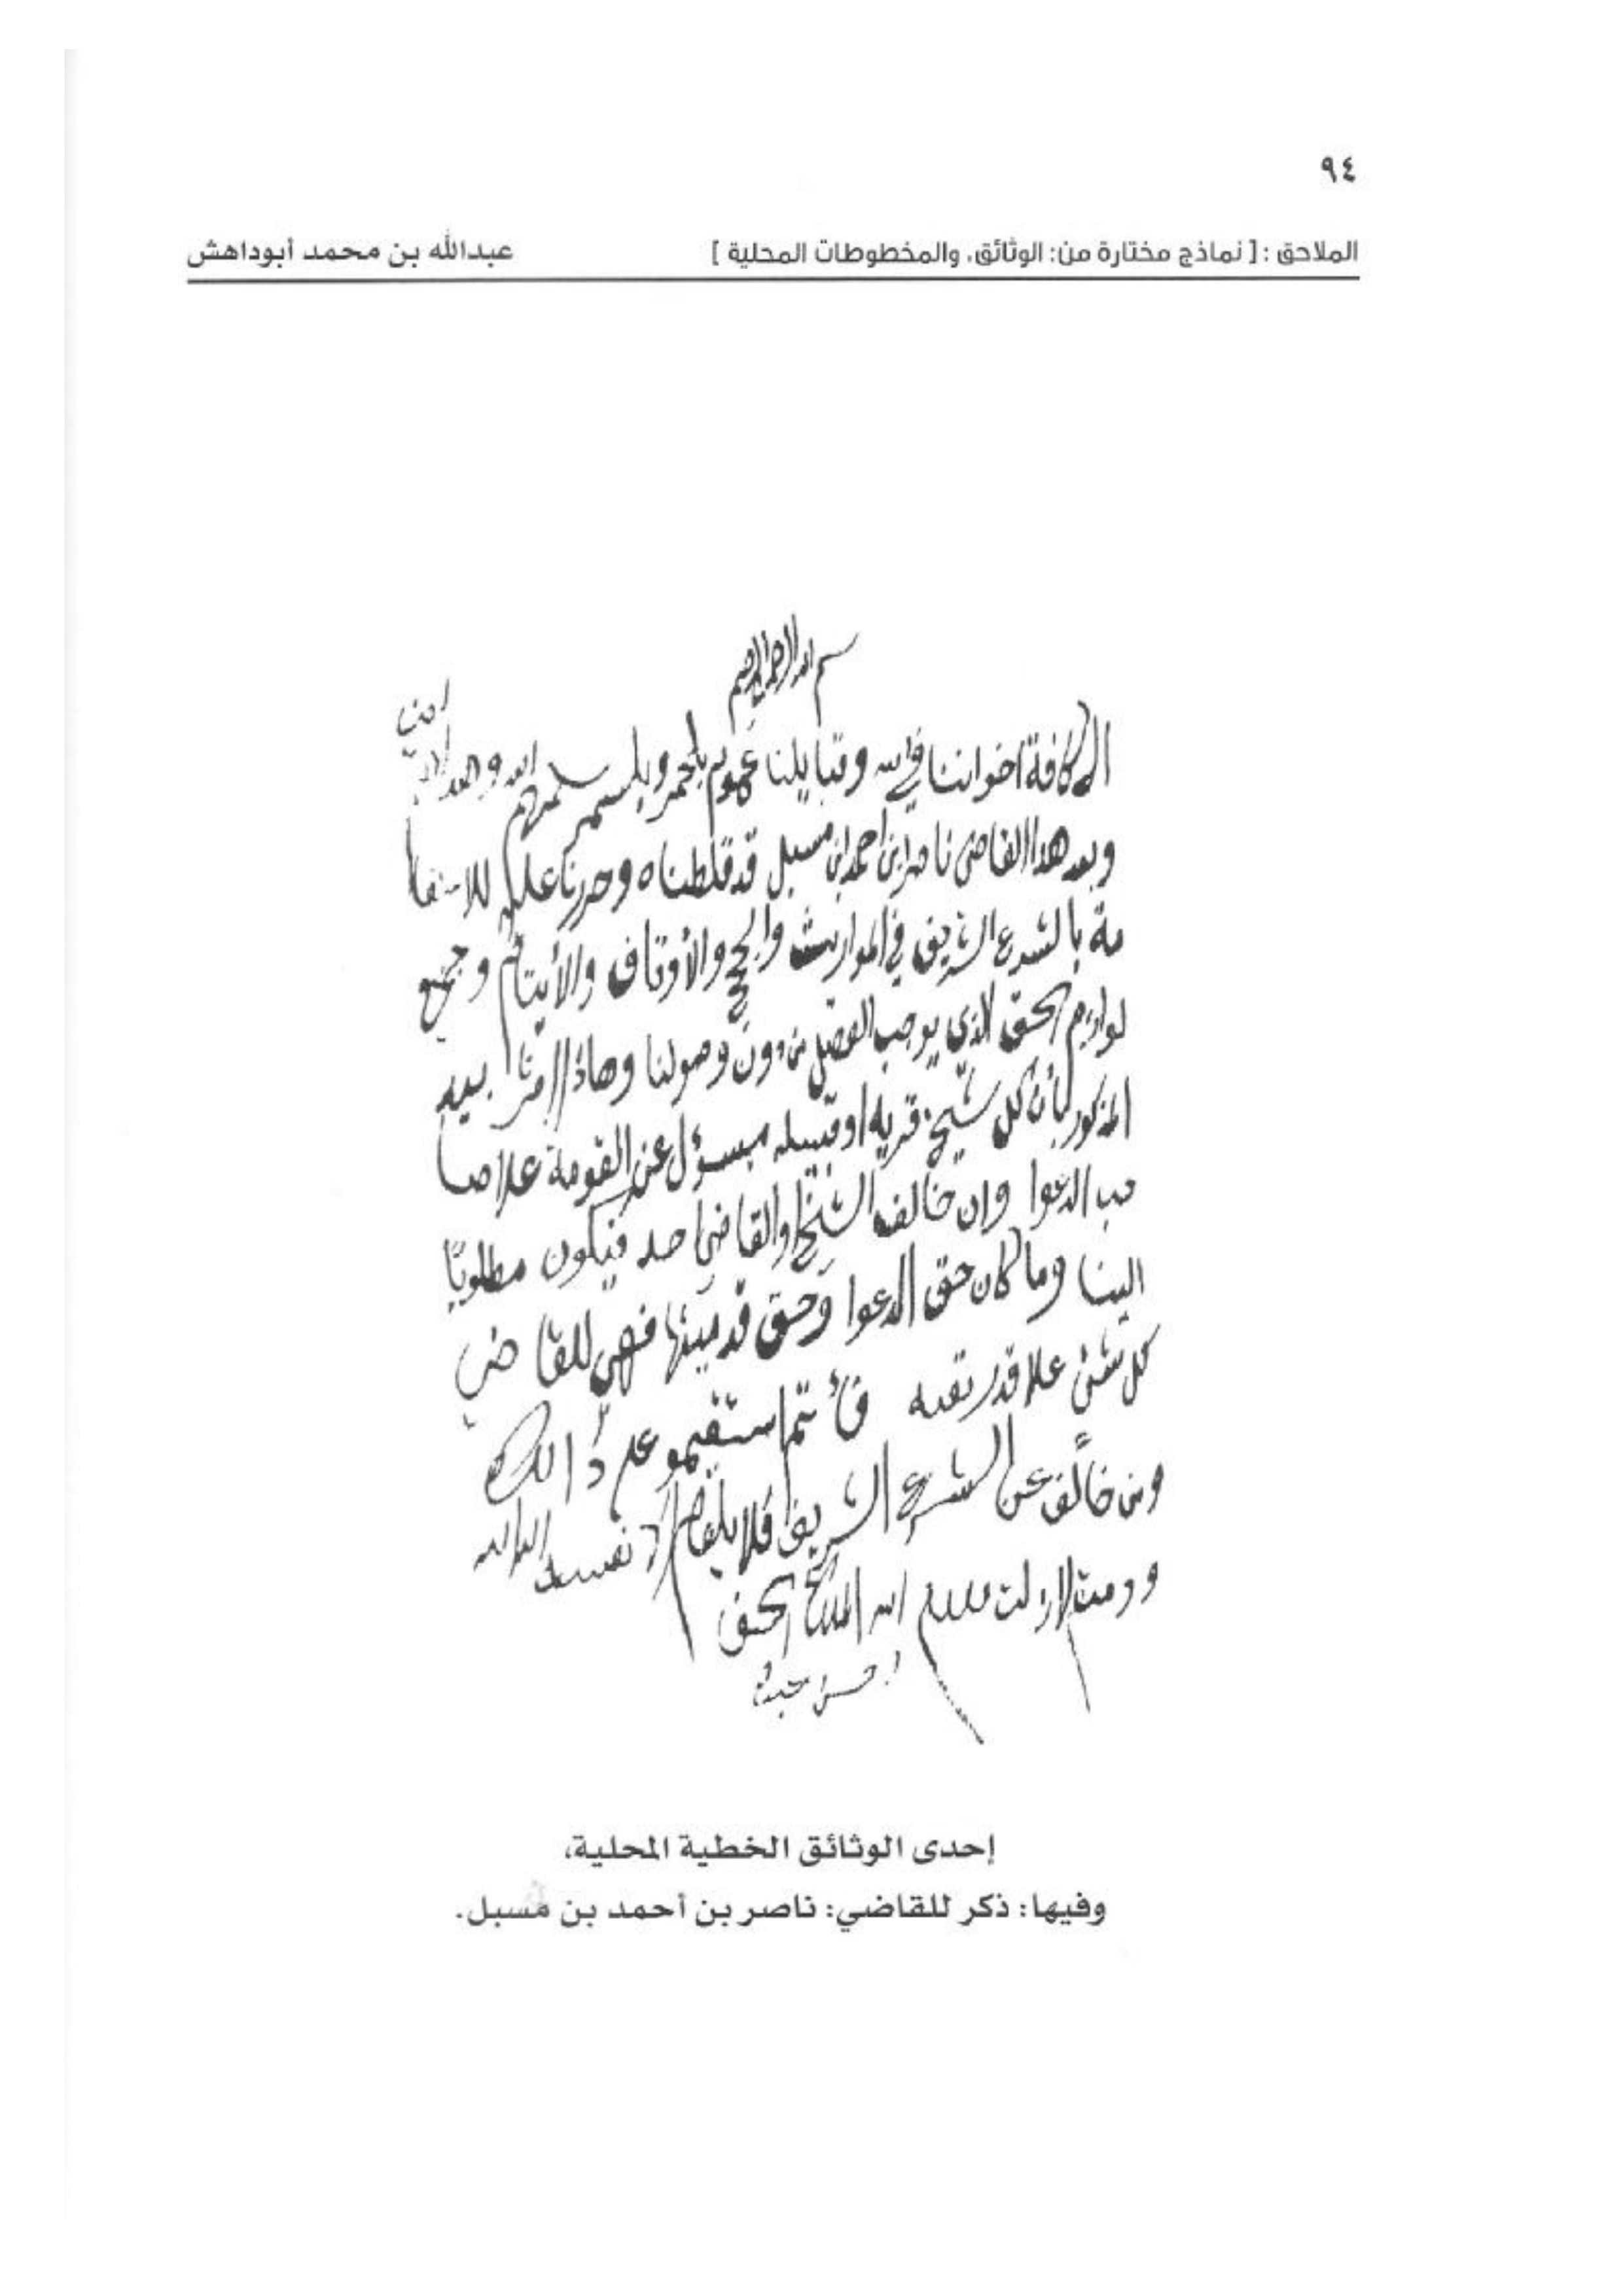 ٩٤
الملاحق : [ نماذج مختارة من: الوثائق، والمخطوطات المحلية ] عبدالله بن محمد أبوداهش
بسم الله الرحمن الرحيم
الى كافة اخواننا في الله وقبايلنا عموم بلحمر وبلسمر سلمهم الله وهداهم امين
وبعد هذا القاضي ناصر ابن احمد ابن مسبل قد قلطناه وحررنا عليه للاستقا
مة بالشرع الشريف في المواريث والحجج والأوقاف والأيتام وجميع
لوازم الحق الذي يوجب الفصل من دون وصولنا وهاذا امرنا بيد
المذكور بأن كل شيخ قريه او قبيله مسؤل عن القومة علا صا
حب الدعوا وان خالف الشيخ او القاضي احد فيكون مطلوبًا
الينا وما كان حق الدعوا وحق قد بينها فهي للقاضي
كل شئ علا قدر تعبه فأنتم استقيمو على ذالك
ومن خالف عن الشرع الشريف فلا يلوم الا نفسه
ودمت
الحق
إحدى الوثائق الخطية المحلية،
وفيها: ذكر للقاضي: ناصر بن أحمد بن مُسبل.